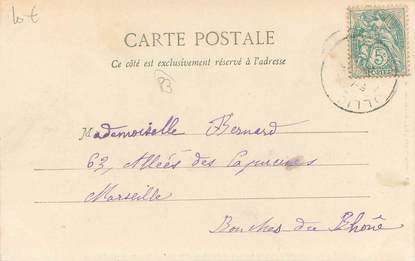 10 €
CARTE POSTALE
Ce côté est exclusivement réservé à l'adresse
5
POSTES
Mademoiselle Bernard
63, Allées des Capucines
Marseille
Bouches du Rhône